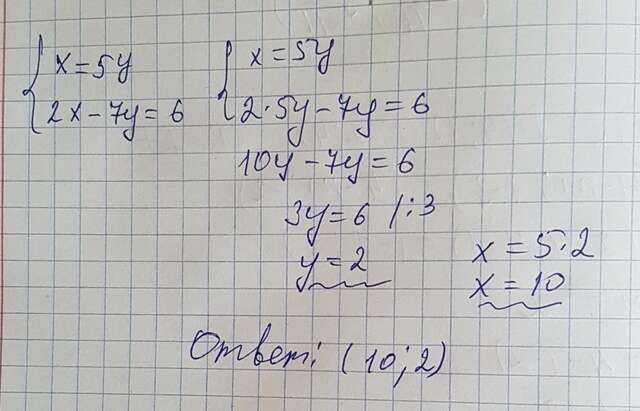 x = 5y
2x - 7y = 6
x = 5y
2·5y - 7y = 6
10y - 7y = 6
3y = 6 /:3
y = 2
x = 5·2
x = 10
Ответ: (10; 2)